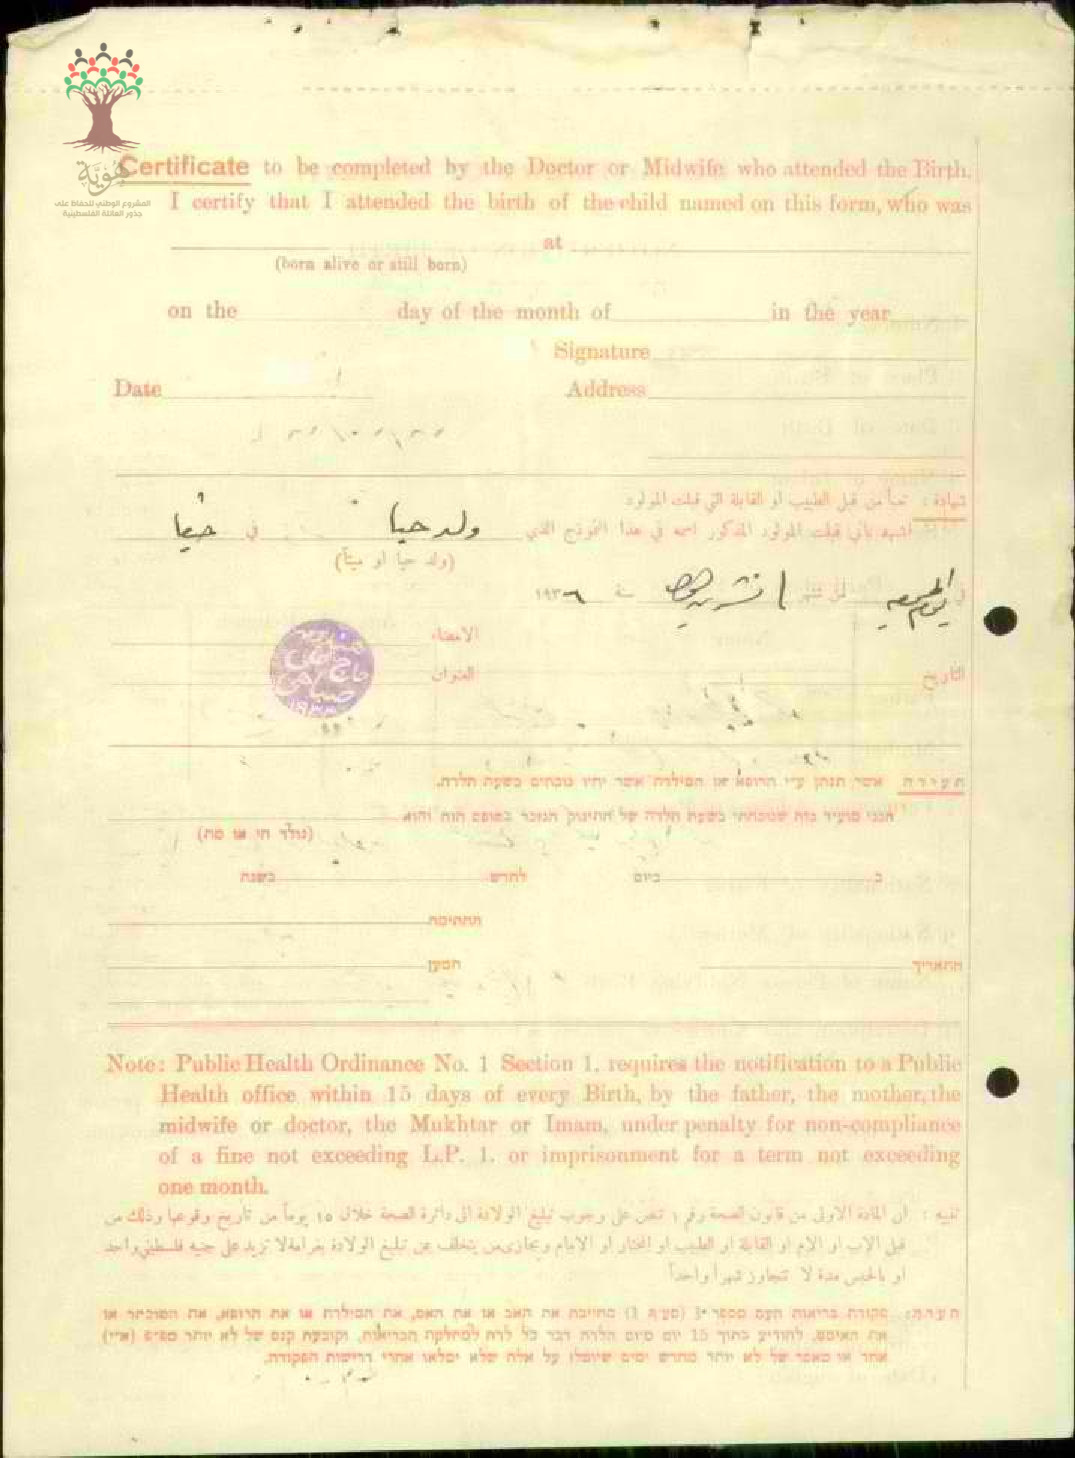 هُوِيَّة
المشروع الوطني للحفاظ على
جذور العائلة الفلسطينية
Certificate to be completed by the Doctor or Midwife who attended the Birth.
I certify that I attended the birth of the child named on this form, who was
at
(born alive or still born)
on the day of the month of in the year
Signature
Date Address
شهادة : تعبأ من قبل الطبيب او القابلة التي قبلت المولود
اشهد بأني قبلت المولود المذكور اسمه في هذا النموذج الذي ولد حيا في حيفا
(ولد حيا او ميتاً)
في يوم من شهر سنة ١٩٣٦
الامضاء
التاريخ العنوان
תעודה אשר תנתן ע״י הרופא או המילדת אשר יהיו נוכחים בשעת הלדה.
הנני מעיד בזה שנוכחתי בשעת הלדה של התינוק הנזכר בטופס הזה והוא
(נולד חי או מת)
ב ביום לחדש בשנת
החתימה
התאריך המען
Note: Public Health Ordinance No. 1 Section 1. requires the notification to a Public
Health office within 15 days of every Birth, by the father, the mother, the
midwife or doctor, the Mukhtar or Imam, under penalty for non-compliance
of a fine not exceeding L.P. 1. or imprisonment for a term not exceeding
one month.
تنبيه : ان المادة الاولى من قانون الصحة رقم ١ تنص على وجوب تبليغ الولادة الى دائرة الصحة خلال ١٥ يوماً من تاريخ وقوعها وذلك من
قبل الاب او الام او القابلة او الطبيب او المختار او الامام ويجازى من يتخلف عن تبليغ الولادة بغرامة لا تزيد على جنيه فلسطيني واحد
او بالحبس مدة لا تتجاوز شهراً واحداً
הערה: פקודת בריאות העם מספר 1 (סעיף 1) מחייבת את האב או את האם, את המילדת או את הרופא, את המוכתר או
את האימם, להודיע בתוך 15 יום מיום הלדה דבר כל לדה למחלקת הבריאות, וקובעת קנס של לא יותר מפונט (א״י)
אחד או מאסר של לא יותר מחדש ימים שיוטלו על אלה שלא ימלאו אחרי דרישות הפקודה.